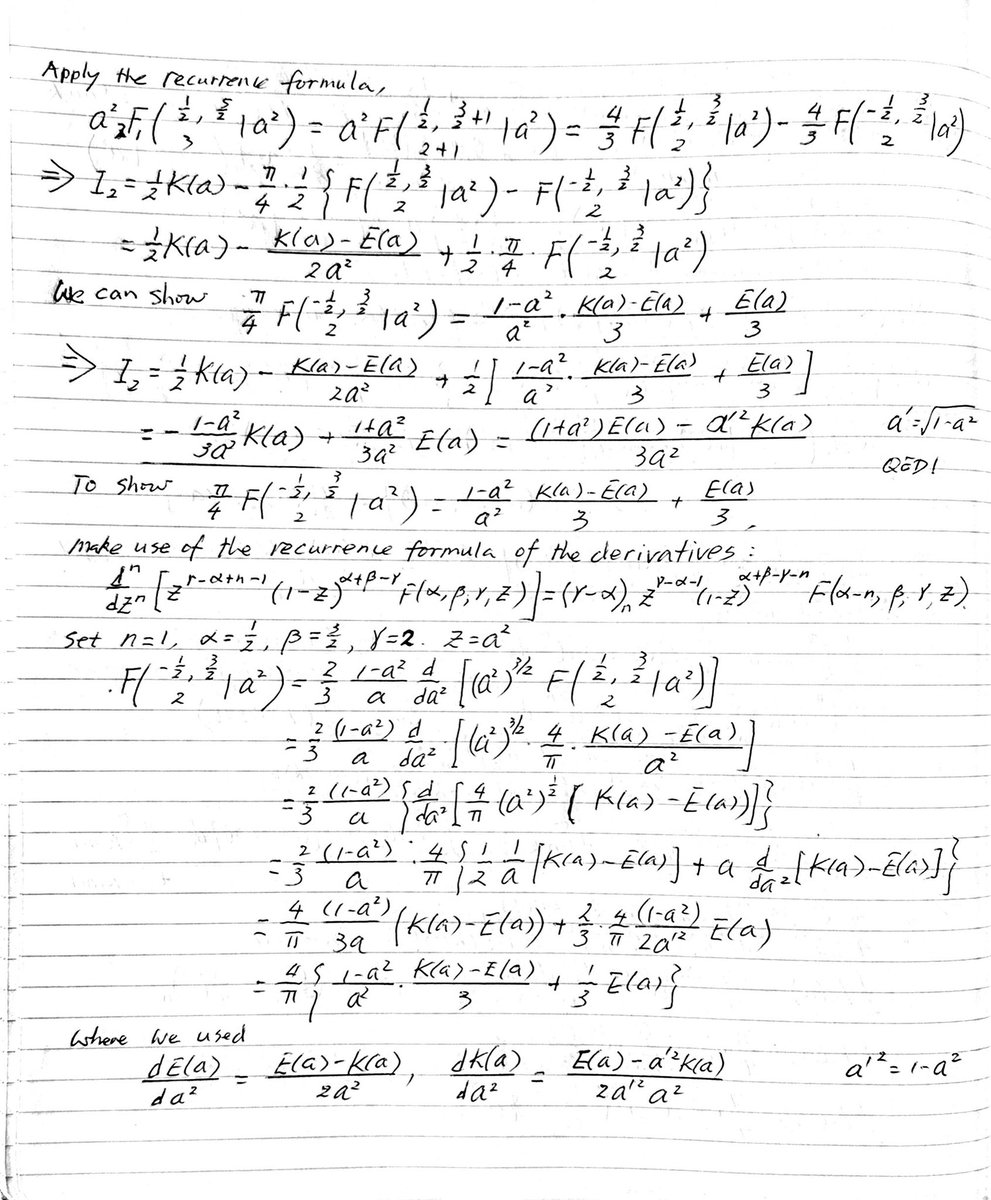 Apply the recurrence formula,
a² ₂F₁(½, 5/2; 3 | a²) = a² F(½, 3/2+1; 2+1 | a²) = 4/3 F(½, 3/2; 2 | a²) - 4/3 F(-½, 3/2; 2 | a²)
⇒ I₂ = ½K(a) - π/4 · ½ { F(½, 3/2; 2 | a²) - F(-½, 3/2; 2 | a²) }
= ½K(a) - (K(a) - E(a))/2a² + ½ · π/4 · F(-½, 3/2; 2 | a²)
We can show π/4 F(-½, 3/2; 2 | a²) = (1-a²)/a² · (K(a)-E(a))/3 + E(a)/3
⇒ I₂ = ½K(a) - (K(a)-E(a))/2a² + ½ [ (1-a²)/a² · (K(a)-E(a))/3 + E(a)/3 ]
= - (1-a²)/3a² K(a) + (1+a²)/3a² E(a) = ((1+a²)E(a) - a'²K(a))/3a² a' = √(1-a²)
QED!
To show π/4 F(-½, 3/2; 2 | a²) = (1-a²)/a² (K(a)-E(a))/3 + E(a)/3.
make use of the recurrence formula of the derivatives :
dⁿ/dzⁿ [z^(γ-α+n-1) (1-z)^(α+β-γ) F(α, β, γ, z)] = (γ-α)ₙ z^(γ-α-1) (1-z)^(α+β-γ-n) F(α-n, β, γ, z).
set n=1, α=½, β=3/2, γ=2. z=a²
F(-½, 3/2; 2 | a²) = 2/3 (1-a²)/a d/da² [(a²)^(3/2) F(½, 3/2; 2 | a²)]
= 2/3 (1-a²)/a d/da² [(a²)^(3/2) · 4/π · (K(a) - E(a))/a²]
= 2/3 (1-a²)/a { d/da² [4/π (a²)^(1/2) ( K(a) - E(a))] }
= 2/3 (1-a²)/a · 4/π { ½ 1/a [K(a) - E(a)] + a d/da² [K(a) - E(a)] }
= 4/π (1-a²)/3a (K(a) - E(a)) + 2/3 · 4/π (1-a²)/2a'² E(a)
= 4/π { (1-a²)/a² · (K(a) - E(a))/3 + 1/3 E(a) }
where we used
dE(a)/da² = (E(a) - K(a))/2a², dK(a)/da² = (E(a) - a'²K(a))/2a'²a² a'² = 1-a²